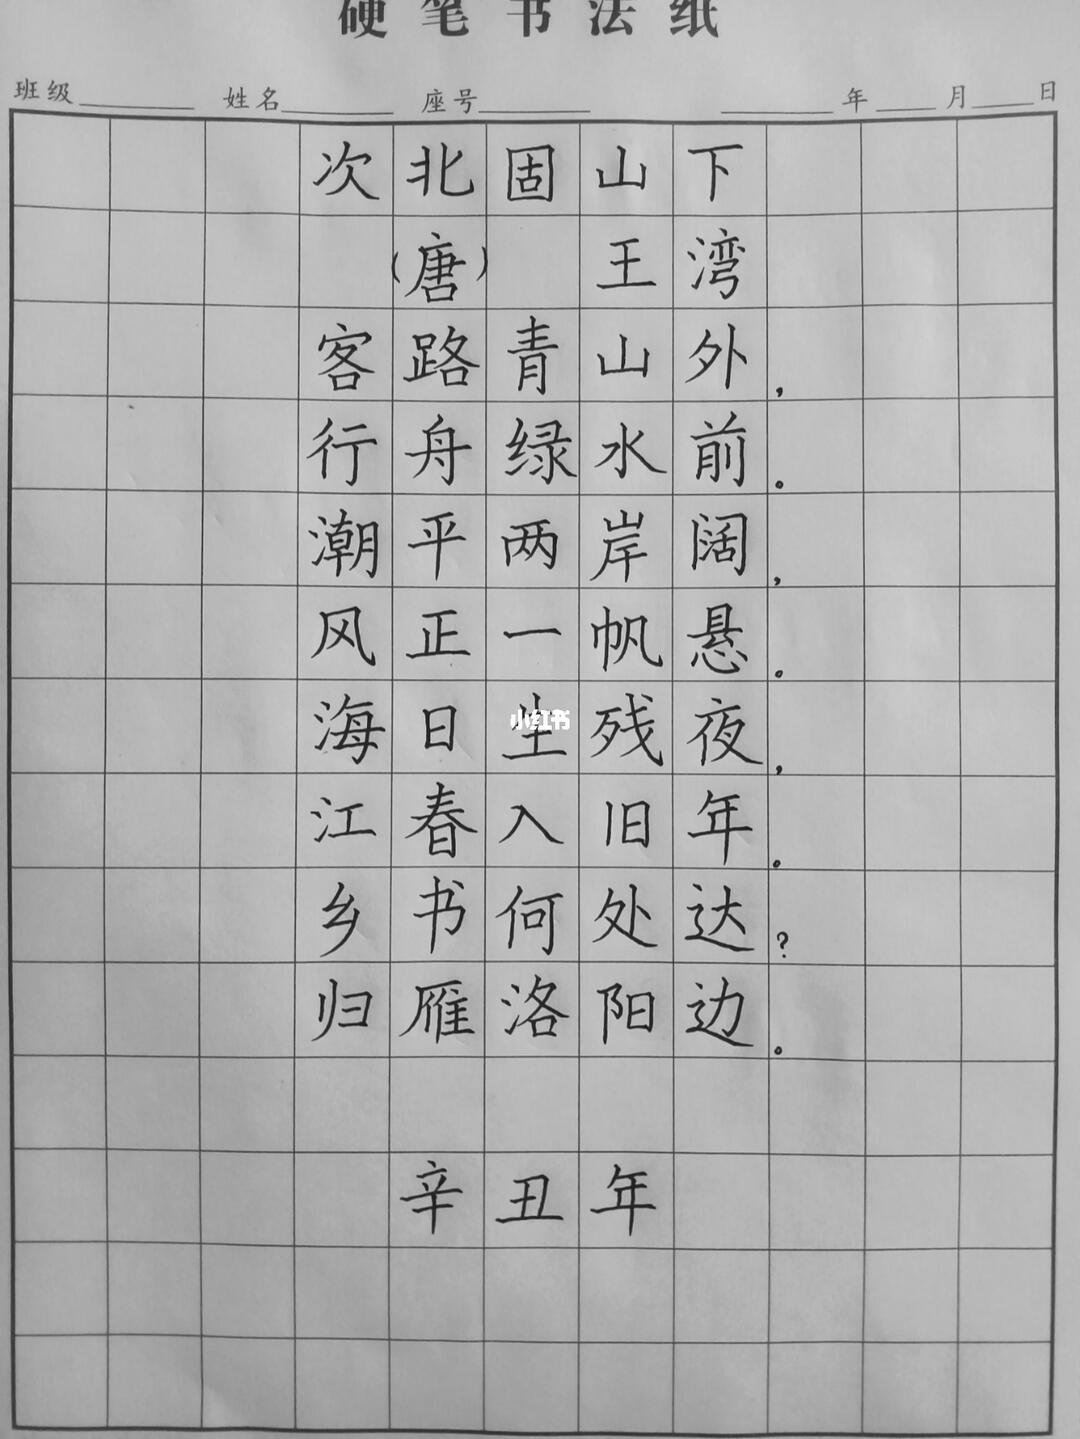 硬笔书法纸
班级 姓名 座号 年 月 日
次北固山下
(唐) 王湾
客路青山外,
行舟绿水前。
潮平两岸阔,
风正一帆悬。
海日生残夜,
江春入旧年。
乡书何处达?
归雁洛阳边。
辛丑年
小红书